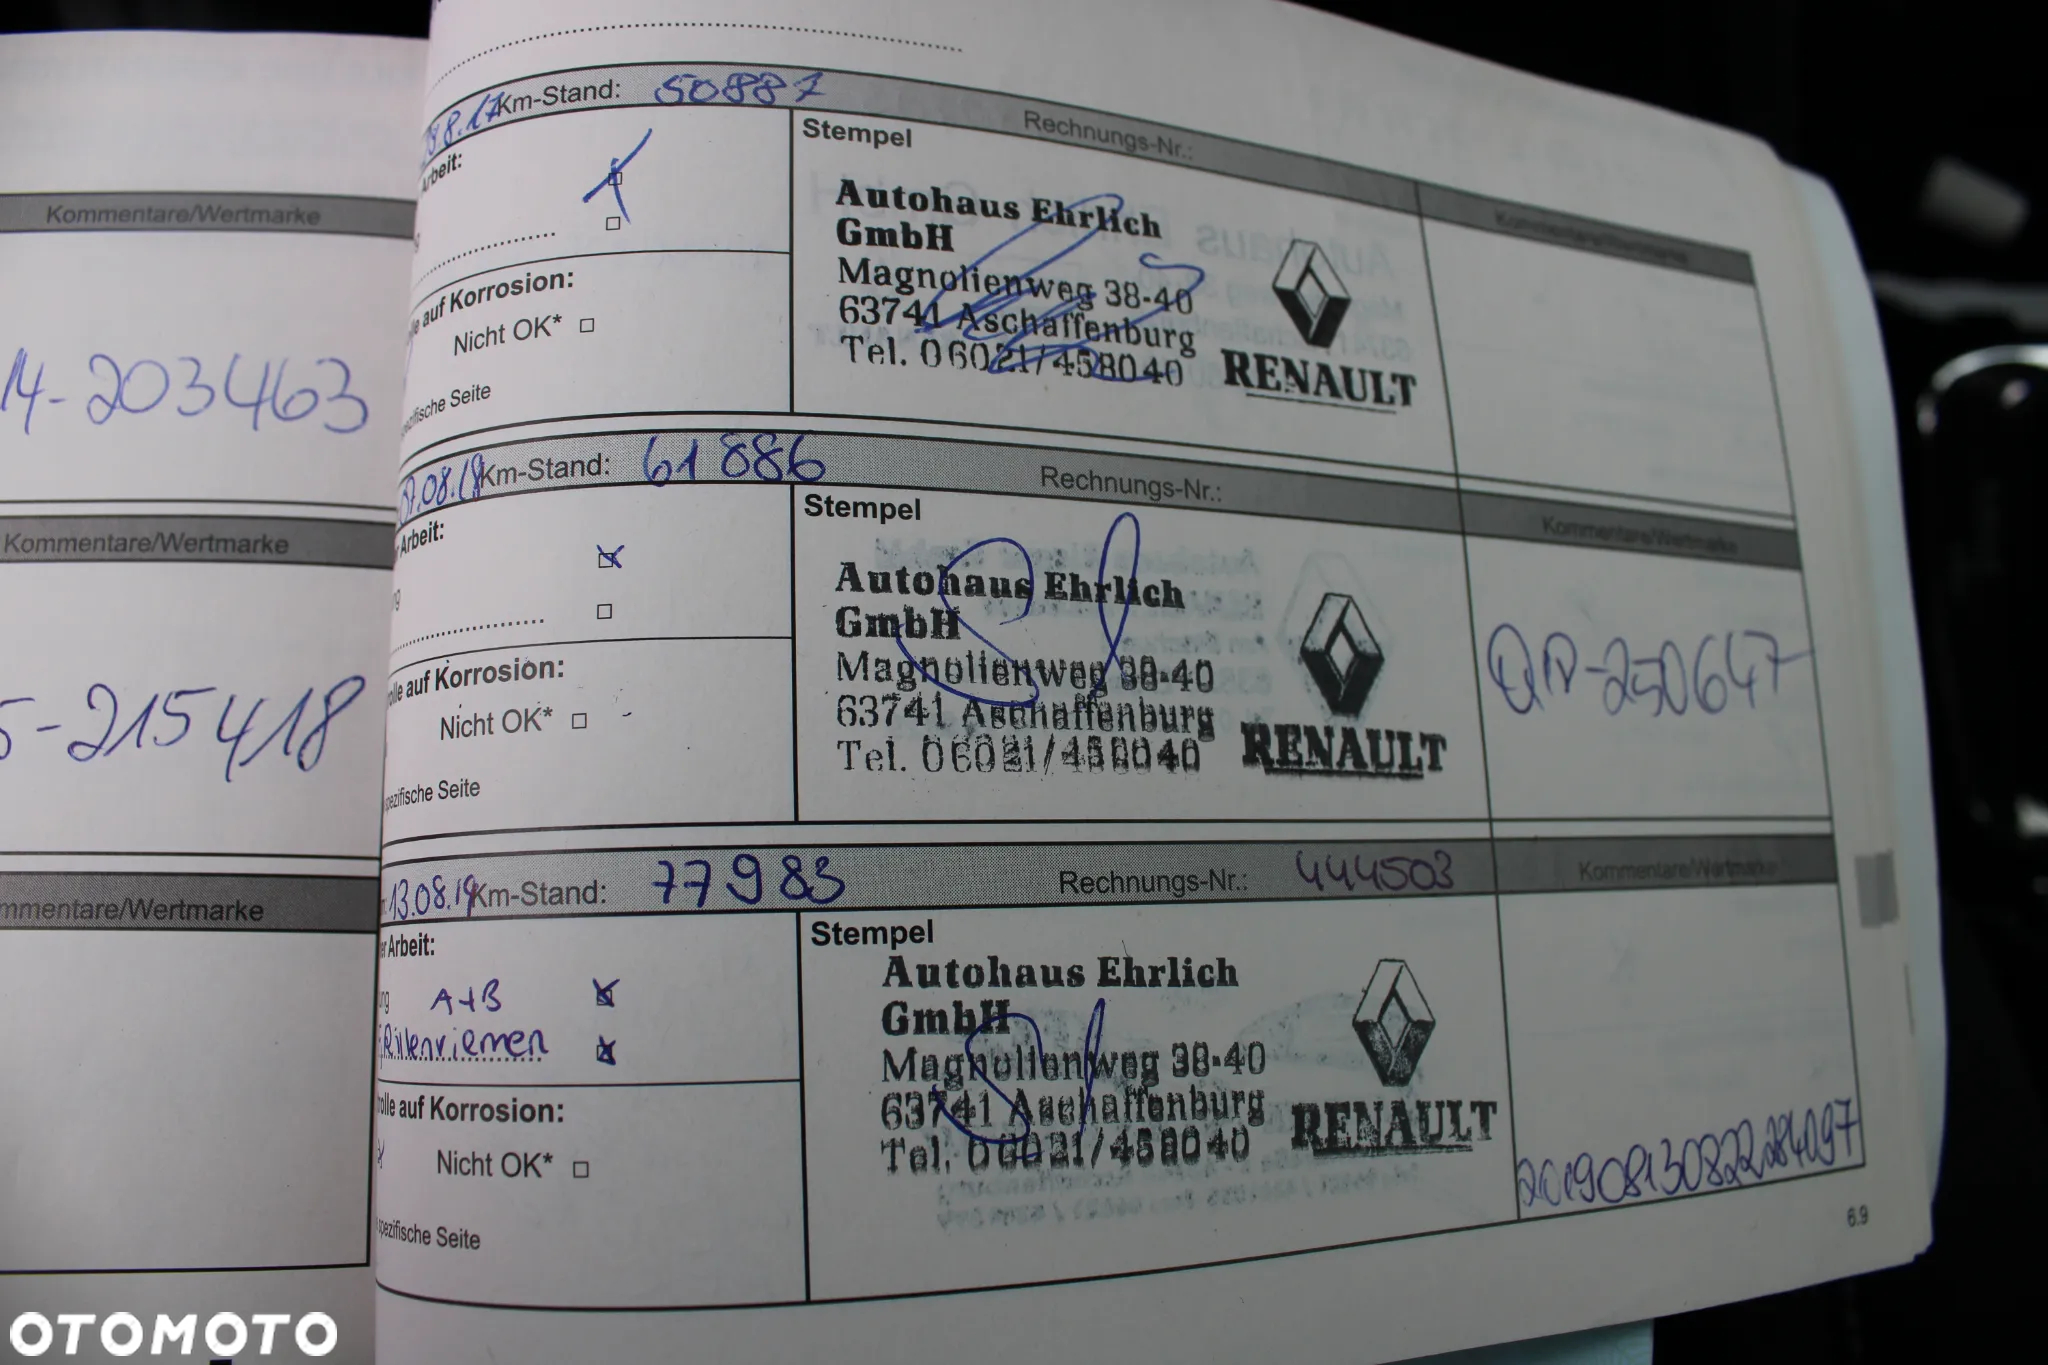 Kommentare/Wertmarke
14-203463
Kommentare/Wertmarke
5-215418
mmentare/Wertmarke
28.8.17 Km-Stand: 50887 Rechnungs-Nr.:
Arbeit:
Stempel
Kommentare/Wertmarke
Autohaus Ehrlich
GmbH
Magnolienweg 38-40
63741 Aschaffenburg
Tel. 06021/458040
RENAULT
lle auf Korrosion:
Nicht OK*
ezifische Seite
07.08.18 Km-Stand: 61886 Rechnungs-Nr.:
er Arbeit:
ng
Stempel
Kommentare/Wertmarke
Autohaus Ehrlich
GmbH
Magnolienweg 38-40
63741 Aschaffenburg
Tel. 06021/458040
RENAULT
-250647
olle auf Korrosion:
Nicht OK*
spezifische Seite
13.08.19 Km-Stand: 77983 Rechnungs-Nr.: 444503
Kommentare/Wertmarke
er Arbeit:
ung A+B
Rillenriemen
Stempel
Autohaus Ehrlich
GmbH
Magnolienweg 38-40
63741 Aschaffenburg
Tel. 06021/458040
RENAULT
rolle auf Korrosion:
Nicht OK*
spezifische Seite
201908130822284097
6.9
OTOMOTO